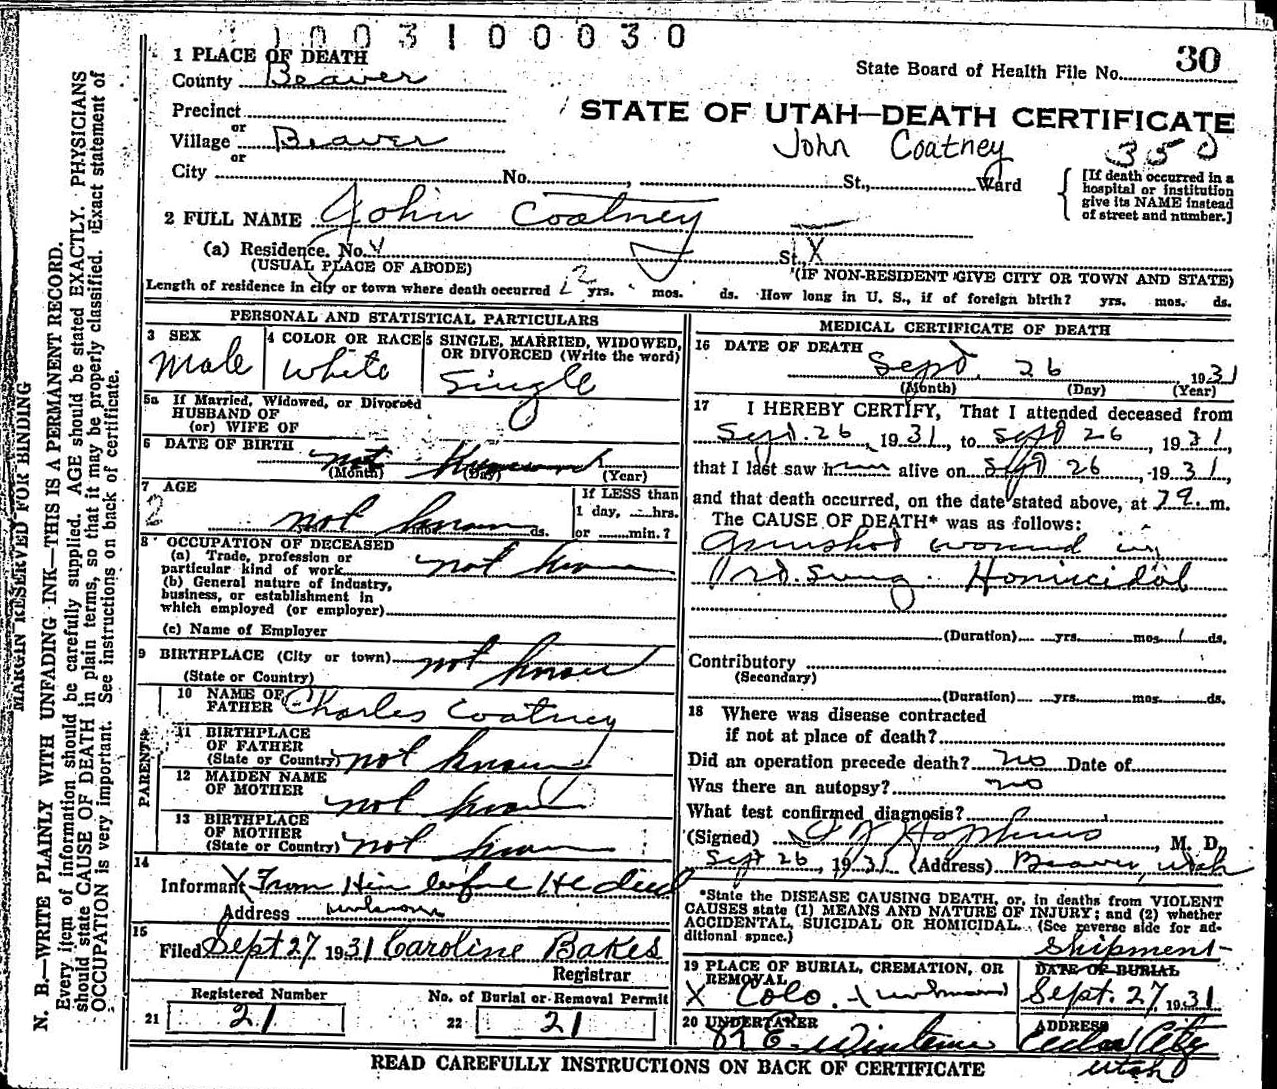 1003100030
1 PLACE OF DEATH
County Beaver
State Board of Health File No. 30
Precinct
STATE OF UTAH—DEATH CERTIFICATE
Village or Beaver
John Coatney 350
or
City No. St., Ward
[If death occurred in a
hospital or institution
give its NAME instead
of street and number.]
2 FULL NAME John Coatney
(a) Residence. No. St. X
(USUAL PLACE OF ABODE) (IF NON-RESIDENT GIVE CITY OR TOWN AND STATE)
Length of residence in city or town where death occurred yrs. mos. ds. How long in U. S., if of foreign birth? yrs. mos. ds.
PERSONAL AND STATISTICAL PARTICULARS
3 SEX
Male
4 COLOR OR RACE
White
5 SINGLE, MARRIED, WIDOWED,
OR DIVORCED (Write the word)
Single
5a If Married, Widowed, or Divorced
HUSBAND OF
(or) WIFE OF
6 DATE OF BIRTH
not
(Month) (Day) (Year)
7 AGE
2 not known ds.
If LESS than
1 day, hrs.
or min.?
8 OCCUPATION OF DECEASED
(a) Trade, profession or
particular kind of work not known
(b) General nature of industry,
business, or establishment in
which employed (or employer)
(c) Name of Employer
9 BIRTHPLACE (City or town) not known
(State or Country)
PARENTS
10 NAME OF
FATHER Charles Coatney
11 BIRTHPLACE
OF FATHER
(State or Country) not known
12 MAIDEN NAME
OF MOTHER not known
13 BIRTHPLACE
OF MOTHER
(State or Country) not known
14
Informant From Him before He died
Address unknown
15
Filed Sept 27 1931 Caroline Bakes
Registrar
Registered Number
21 21
No. of Burial or Removal Permit
22 21
MEDICAL CERTIFICATE OF DEATH
16 DATE OF DEATH
Sept. 26 1931
(Month) (Day) (Year)
17 I HEREBY CERTIFY, That I attended deceased from
Sept. 26, 1931, to Sept 26, 1931,
that I last saw him alive on Sept 26, 1931,
and that death occurred, on the date stated above, at m.
The CAUSE OF DEATH* was as follows:
Gunshot wound in
Homicidal
(Duration) yrs. mos. 1 ds.
Contributory
(Secondary)
(Duration) yrs. mos. ds.
18 Where was disease contracted
if not at place of death?
Did an operation precede death? no Date of
Was there an autopsy? no
What test confirmed diagnosis?
(Signed) Hopkins, M. D.
Sept 26, 1931 (Address) Beaver, Utah
*State the DISEASE CAUSING DEATH, or, in deaths from VIOLENT
CAUSES state (1) MEANS AND NATURE OF INJURY; and (2) whether
ACCIDENTAL, SUICIDAL OR HOMICIDAL. (See reverse side for ad-
ditional space.)
Shipment
19 PLACE OF BURIAL, CREMATION, OR
REMOVAL
X Colo. (unknown)
DATE OF BURIAL
Sept. 27, 1931
20 UNDERTAKER
ADDRESS
Cedar City
Utah
READ CAREFULLY INSTRUCTIONS ON BACK OF CERTIFICATE
MARGIN RESERVED FOR BINDING
N. B.—WRITE PLAINLY WITH UNFADING INK—THIS IS A PERMANENT RECORD.
Every item of information should be carefully supplied. AGE should be stated EXACTLY. PHYSICIANS
should state CAUSE OF DEATH in plain terms, so that it may be properly classified. Exact statement of
OCCUPATION is very important. See instructions on back of certificate.